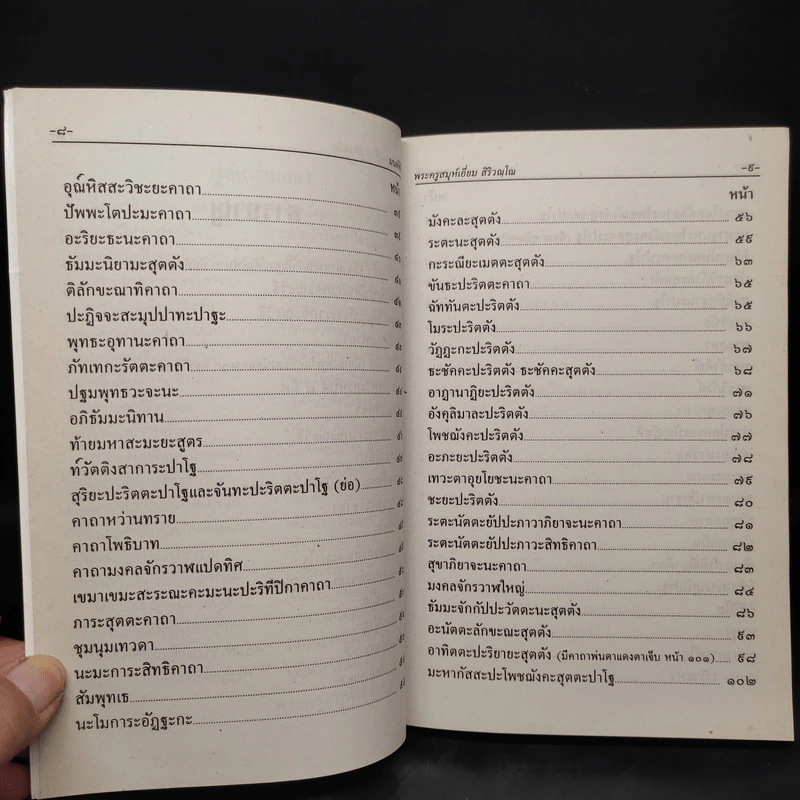 -๘-
หน้า
อุณ์หิสสะวิชะยะคาถา
ปัพพะโตปะมะคาถา
อะริยะธะนะคาถา
ธัมมะนิยามะสุตตัง
ติลักขะณาทิคาถา
ปะฏิจจะสะมุปปาทะปาฐะ
พุทธะอุทานะคาถา
ภัทเทกะรัตตะคาถา
ปฐมพุทธวะจะนะ
อภิธัมมะนิทาน
ท้ายมหาสะมะยะสูตร
ท์วัตติงสาการะปาโฐ
สุริยะปะริตตะปาโฐและจันทะปะริตตะปาโฐ (ย่อ)
คาถาหว่านทราย
คาถาโพธิบาท
คาถามงคลจักรวาฬแปดทิศ
เขมาเขมะสะระณะคะมะนะปะริทีปิกาคาถา
ภาระสุตตะคาถา
ชุมนุมเทวดา
นะมะการะสิทธิคาถา
สัมพุทเธ
นะโมการะอัฏฐะกะ
พระครูสมุห์เอี่ยม สิริวณฺโณ -๙-
หน้า
มังคะละสุตตัง ๕๖
ระตะนะสุตตัง ๕๙
กะระณียะเมตตะสุตตัง ๖๓
ขันธะปะริตตะคาถา ๖๕
ฉัททันตะปะริตตัง ๖๕
โมระปะริตตัง ๖๖
วัฏฏะกะปะริตตัง ๖๗
ธะชัคคะปะริตตัง ธะชัคคะสุตตัง ๖๘
อาฏานาฏิยะปะริตตัง ๗๑
อังคุลิมาละปะริตตัง ๗๖
โพชฌังคะปะริตตัง ๗๗
อะภะยะปะริตตัง ๗๘
เทวะตาอุยโยชะนะคาถา ๗๙
ชะยะปะริตตัง ๘๐
ระตะนัตตะยัปปะภาวาภิยาจะนะคาถา ๘๑
ระตะนัตตะยัปปะภาวะสิทธิคาถา ๘๒
สุขาภิยาจะนะคาถา ๘๓
มงคลจักรวาฬใหญ่ ๘๔
ธัมมะจักกัปปะวัตตะนะสุตตัง ๘๖
อะนัตตะลักขะณะสุตตัง ๙๓
อาทิตตะปะริยายะสุตตัง (มีคาถาพ่นตาแดงตาเจ็บ หน้า ๑๐๑) ๙๘
มะหากัสสะปะโพชฌังคะสุตตะปาโฐ ๑๐๒